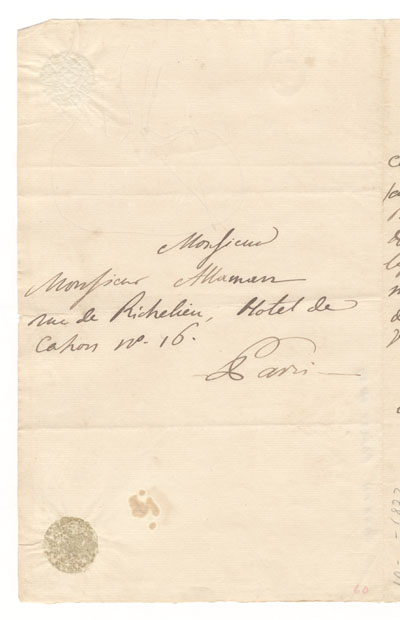 Monsieur
Monsieur Allaman
rue de Richelieu, Hotel de
Cahors nº. 16.
Paris
60